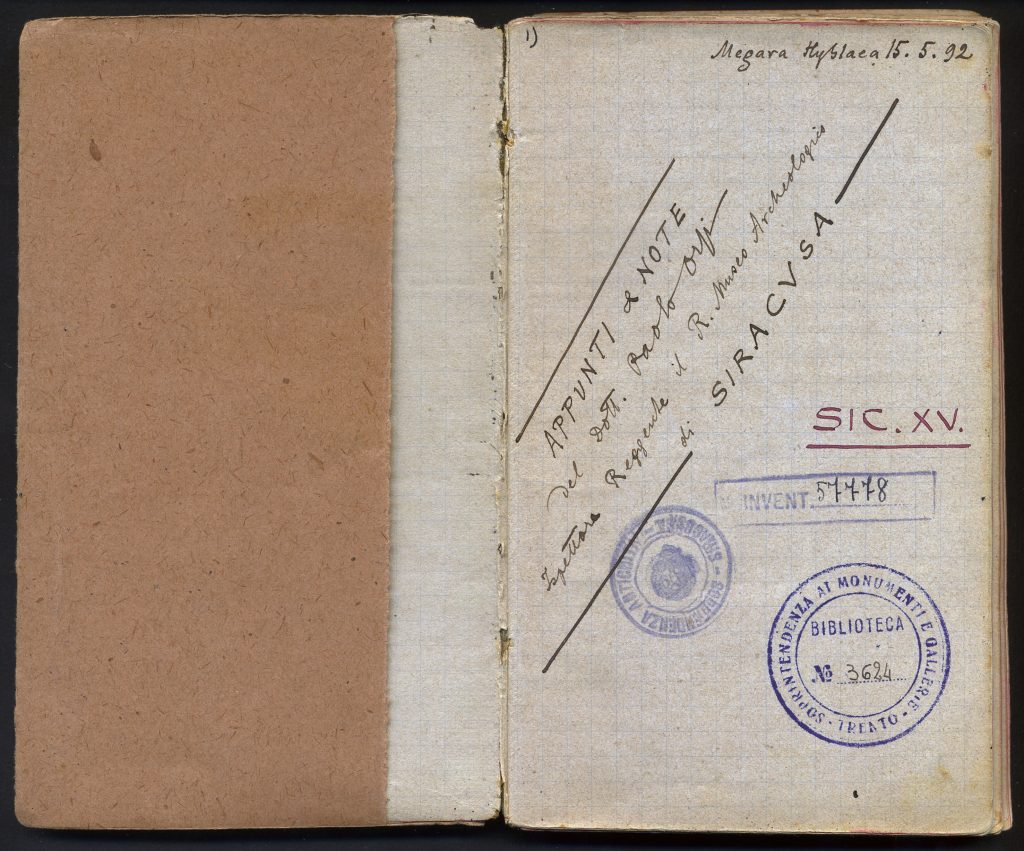 1)
Megara Hyblaea 15. 5. 92
APPUNTI & NOTE
del Dott. Paolo Orsi
Ispettore Reggente il R. Museo Archeologico
di SIRACVSA
SIC. XV.
INVENT. 57778
SOPRINTENDENZA ANTICHITÀ - SIRACUSA -
SOPRINTENDENZA AI MONUMENTI E GALLERIE - TRENTO -
BIBLIOTECA
№ 3624